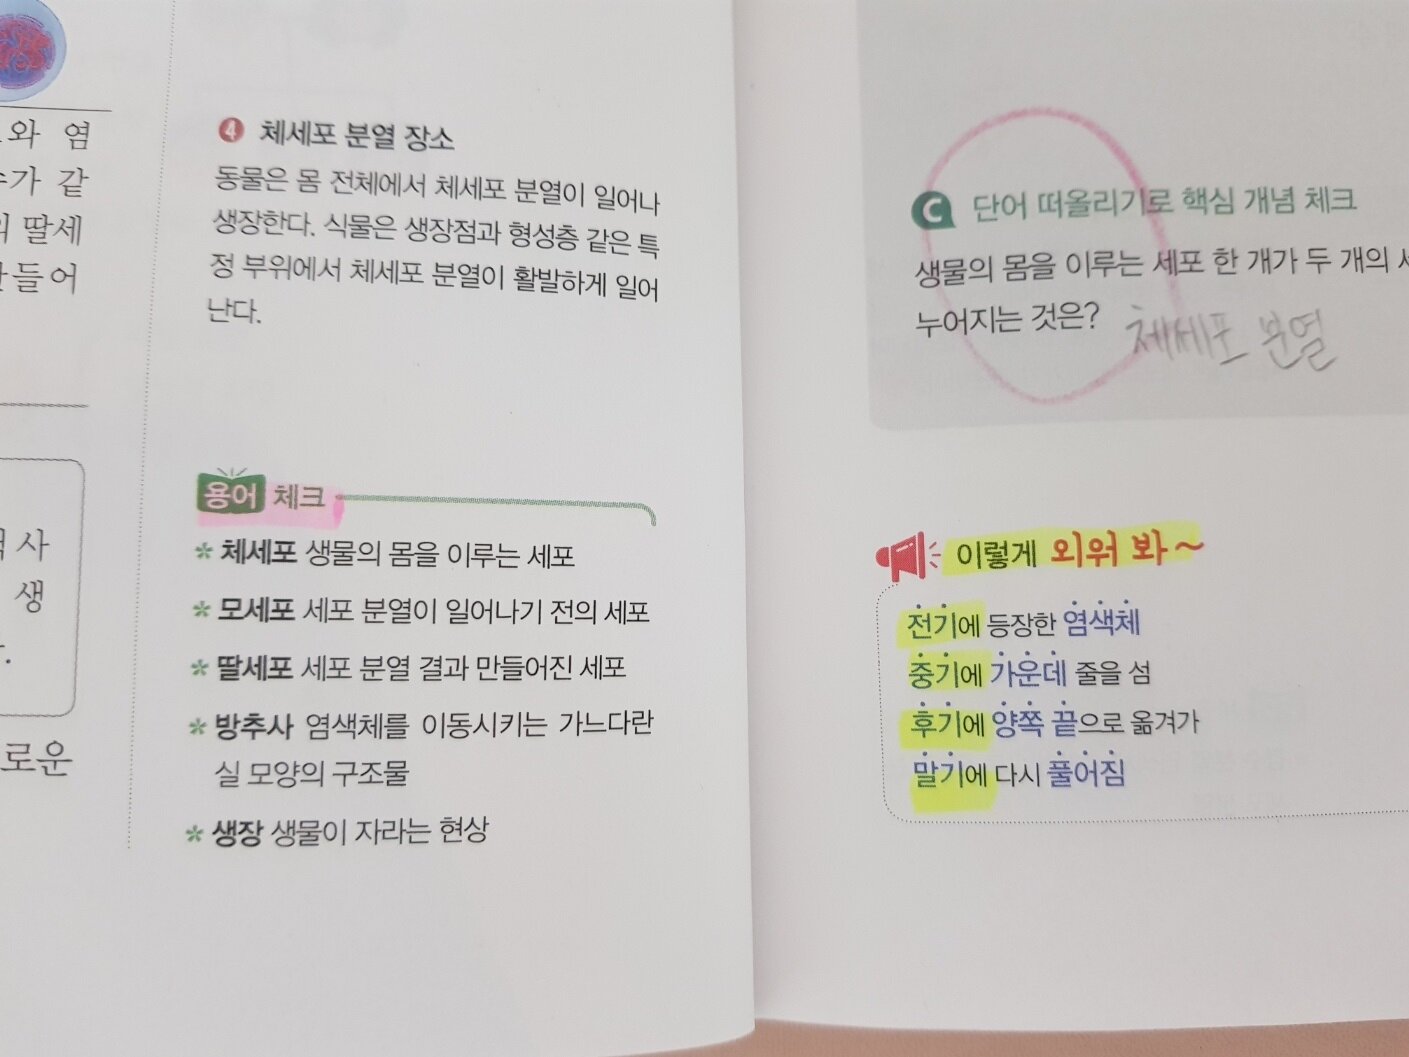 와 염
가 같
딸세
들어
사
생
로운
4 체세포 분열 장소
동물은 몸 전체에서 체세포 분열이 일어나
생장한다. 식물은 생장점과 형성층 같은 특
정 부위에서 체세포 분열이 활발하게 일어
난다.
용어 체크
* 체세포 생물의 몸을 이루는 세포
* 모세포 세포 분열이 일어나기 전의 세포
* 딸세포 세포 분열 결과 만들어진 세포
* 방추사 염색체를 이동시키는 가느다란
실 모양의 구조물
* 생장 생물이 자라는 현상
C 단어 떠올리기로 핵심 개념 체크
생물의 몸을 이루는 세포 한 개가 두 개의
누어지는 것은? 체세포 분열
이렇게 외워 봐~
전기에 등장한 염색체
중기에 가운데 줄을 섬
후기에 양쪽 끝으로 옮겨가
말기에 다시 풀어짐